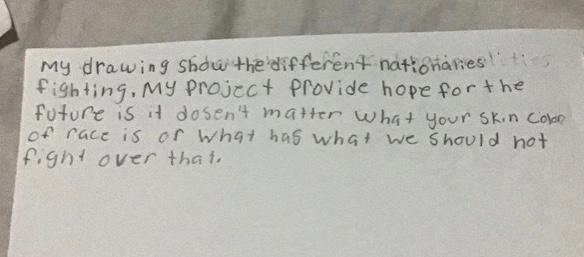 My drawing show the different nationanies ties
fighting. My project provide hope for the
future is it dosen't matter what your skin color
of race is or what has what we should not
fight over that.